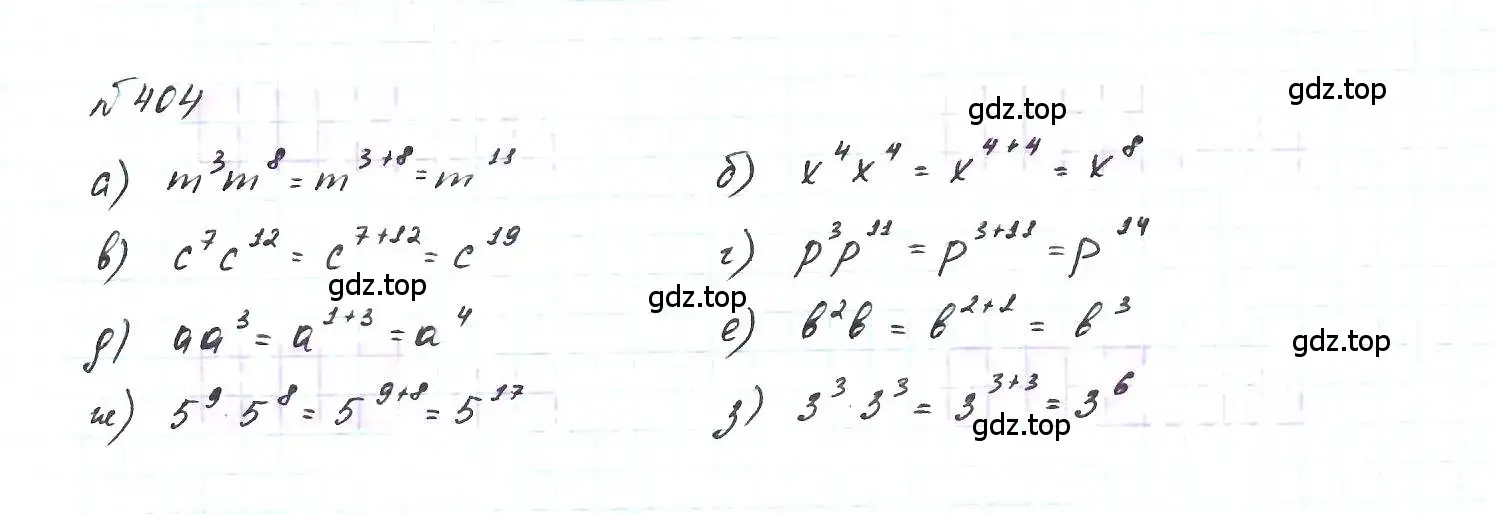 № 404
gdz.top
gdz.top
а) m³m⁸ = m³⁺⁸ = m¹¹ б) x⁴x⁴ = x⁴⁺⁴ = x⁸
в) c⁷c¹² = c⁷⁺¹² = c¹⁹ г) p³p¹¹ = p³⁺¹¹ = p¹⁴
gdz.top
gdz.top
д) aa³ = a¹⁺³ = a⁴ е) b²b = b²⁺¹ = b³
gdz.top
ж) 5⁹·5⁸ = 5⁹⁺⁸ = 5¹⁷ з) 3³·3³ = 3³⁺³ = 3⁶
gdz.top